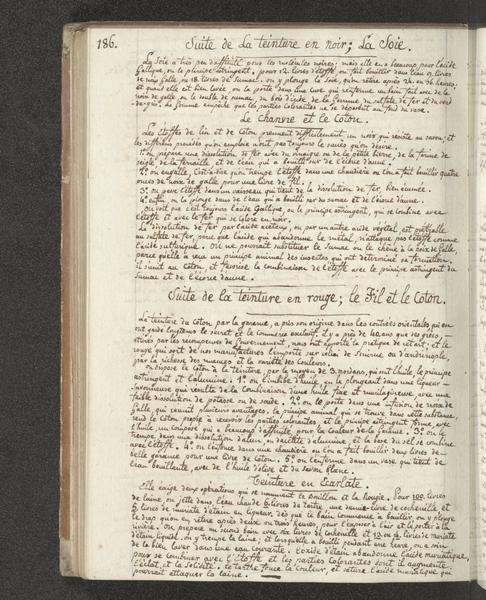 186. Suite de La teinture en noir; La Soie.
La Soie a très peu d'affinité pour les molécules noires; mais elle en a beaucoup pour l'acide
Gallique, ou le principe astringent. pour 12 livres d'étoffe on fait bouillir dans l'eau 9 livres
de noix Galle, ou 18 livres de Sumac. on y plonge la Soie, qu'on retire après 24 ou 36 heures;
et quand elle est bien lavée on la porte dans une cuve qui renferme un bain fait avec de la
noix de galle, ou le sumac, du bois d'inde, de la Gomme du sulfate de fer et du verd
de-gris. la Gomme empêche que les parties colorantes ne se déposent au fond du vase.
Le chanvre et le Coton.
Les Etoffes de lin et de Coton prennent difficilement un noir qui résiste au savon; et
les différens procédés qu'on emploie n'ont pas toujours le succès qu'on désire.
1°. on prépare une dissolution de fer avec du vinaigre ou de la petite bierre, de la farine de
seigle de la ferraille et de l'eau qui a bouilli sur de l'écorce d'aune.
2°. on engalle, c'est-à-dire qu'on trempe l'étoffe dans une chaudière où l'on a fait bouillir quatre
onces de noix de galle pour une livre de fil.
3°. on passe l'étoffe dans un vaisseau qui tient de la dissolution de fer, bien écumée.
4°. enfin, on la plonge dans de l'eau qui a bouilli sur du sumac et de l'écorce d'aune.
On voit que c'est toujours l'acide Gallique, ou le principe astringent, qui se combine avec
l'étoffe et avec le fer qui se colore en noir.
La dissolution de fer par l'acide acéteux, ou par un autre acide végétal, est préférable
au sulfate de fer, parce que l'acide qui abandonne le métal, n'attaque pas l'étoffe comme
l'acide sulfurique. On ne pourrait substituer le Sumac ou le chêne à la noix de Galle,
parce qu'elle a reçu un principe animal des insectes qui ont déterminé sa formation,
il s'unit au coton, et favorise la combinaison de l'étoffe avec le principe astringent du
Sumac et de l'écorce d'aune.
Suite de la teinture en rouge; le Fil et le Coton.
La teinture du coton par la garance, a pris son origine dans les contrées orientales qui en
ont gardé longtems le secret et le commerce exclusif. il y a près de 40 ans que des grecs,
attirés par les récompenses du Gouvernement, nous ont apporté la pratique de cet art; et le
rouge qui sort de nos manufactures l'emporte sur celui de Smirne ou d'andrinople,
par la richesse des nuances et la variété des couleurs.
on dispose le coton à la teinture, par le moyen de 3 mordans, qui sont l'huile, le principe
astringent et l'alumine. 1°. on l'imbibe d'huile, en le plongeant dans une liqueur
savonneuse qui résulte de la combinaison d'une huile fixe et mucilagineuse, avec une
faible dissolution de potasse ou de soude. 2°. on le porte dans une infusion de noix de
Galle, qui réunit plusieurs avantages. le principe animal qui se trouve dans cette substance,
rend le coton propre à recevoir les parties colorantes, et le principe astringent forme, avec
l'huile, un composé qui a beaucoup d'affinité pour la couleur de la garance. 3°. on le
trempe dans une dissolution d'alun, ou d'acétite d'alumine, et la base du sel se combine
avec l'étoffe. 4°. on l'enfonce dans une chaudière où l'on a fait bouillir deux livres de
belle garance pour une livre de coton. 5°. on l'enferme dans un vase qui tient de
l'eau bouillante, avec de l'huile d'olive et du savon blanc.
Teinture en Ecarlate.
Elle exige deux opérations qui se nomment le bouillon et la Rougie. Pour 100 livres
de laine, on jette dans l'eau chaude 6 livres de tartre, une demie-livre de cochenille et
5 livres de muriate d'étain en liqueur; dès que le bain commence à bouillir on y plonge
le drap qu'on en retire après deux ou trois heures, pour l'exposer à l'air et le porter à la
rivière. On prépare un second bain avec six livres de cochenille et 12 ou 14 livres de muriate
d'étain liquid. on y trempe la laine; et lorsqu'elle a bouilli pendant une heure, on a soin
de la bien laver dans une eau courante. l'oxide d'étain abandonne l'acide muriatique,
pour se combiner avec l'étoffe et les parties colorantes dont il augmente
l'éclat et la solidité. le tartre fonce la couleur, et sature l'acide muriatique qui
pourrait attaquer la laine.